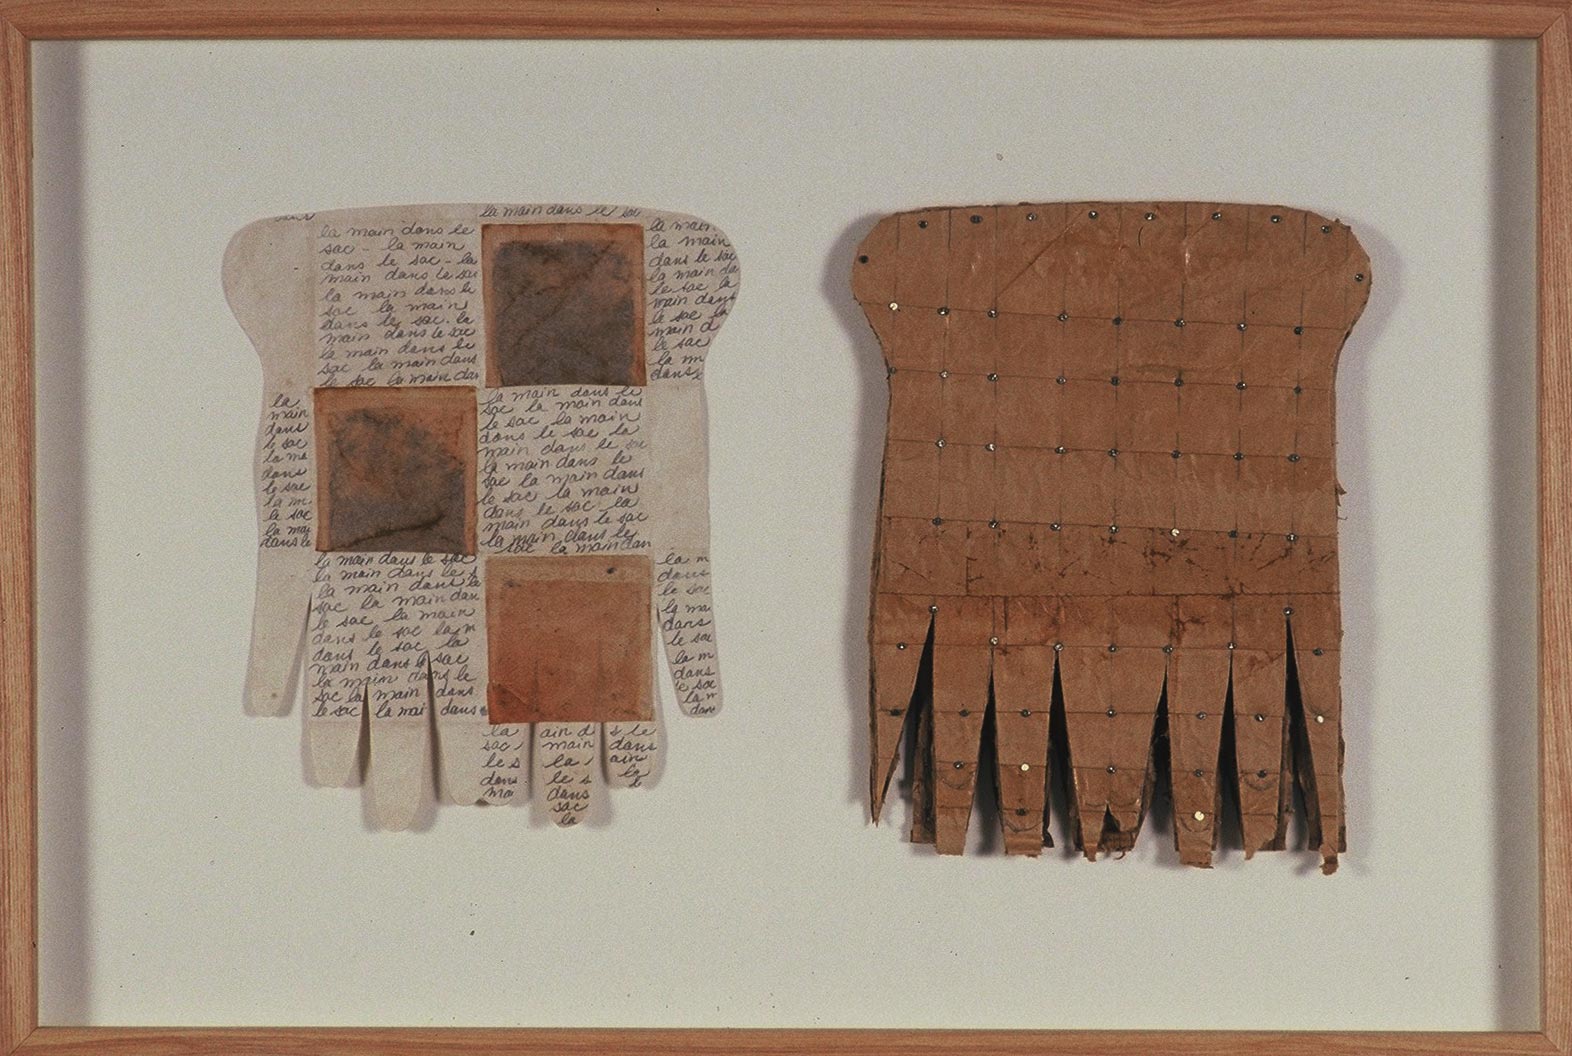 dans
la main dans le sac
la main dans le
sac - la main
dans le sac - la
main dans le sac
la main dans le
sac la main
dans le sac. la
main dans le sac
la main dans le
sac la main dans
le sac la main dan
la main
la main
dans le sac
la main da
le sac la
main dans
le sac
main d
le sac
la m
dans
la
main
dans
le sac
la ma
dans
le sac
la m
le sac
la mai
dans le
la main dans le
sac la main dans
le sac la main
dans le sac la
main dans le sac
la main dans le
sac la main dans
le sac la main
dans le sac - la
main dans le sac
la main dans le
sac la main dan
la main dans le sac
la main dans le s
la main dans la
sac la main dan
le sac la main
dans le sac la m
dans le sac la
main dans le sac
la main dans le
sac la main dans
le sac la mai dans
la m
dans
le sac
la ma
dans
le sac
la m
dans
le sac
la m
dans
la
sac
le s
dans
ma
ain d
main
la
le s
dans
sac
la
s le
dans
ain
la